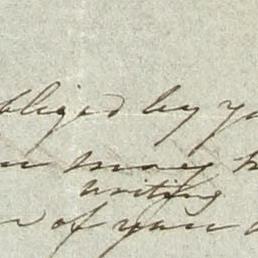 obliged by yo
may
writing
of your